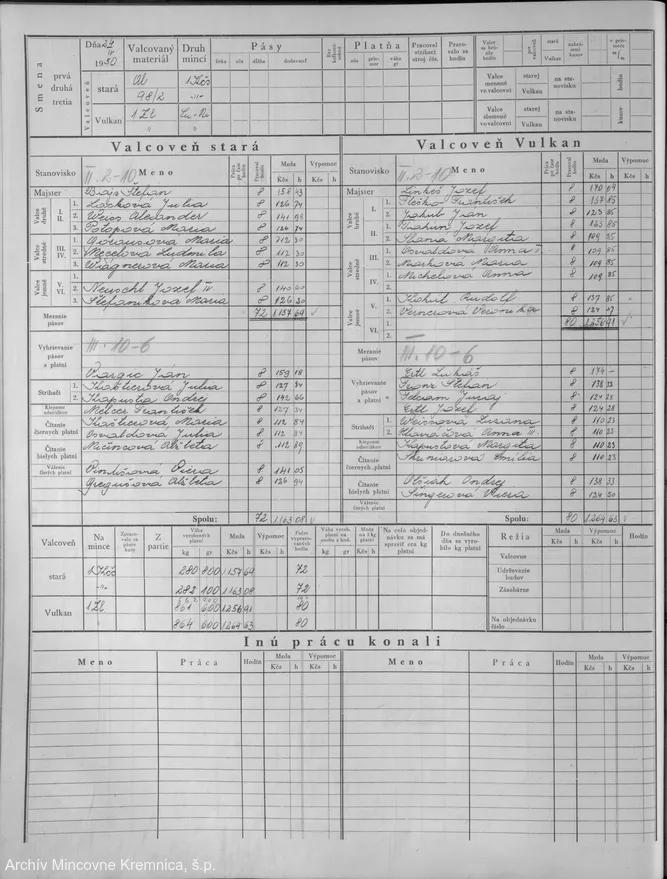 Smena
prvá
druhá
tretia
Dňa 24
IV
1950
Valcovaný materiál
Druh mincí
Pásy
šírka
sila
dĺžka
Platňa
sila
priemer
váha gr
Pracoval strihací stroj čís.
Pracovalo za hodín
Valcovaň
stará
Al
98/2
1 Kčs
-"-
Vulkan
1 Zl
Cu-Ni
Valce menené vo valcovni
starej
Vulkan
na stanovisku
hodín
Valce zlomené vo valcovni
starej
Vulkan
na stanovisku
kusov
Valcoveň stará
Stanovisko
II. 2-10
Meno
Mzda
Výpomoc
Kčs
h
Kčs
h
Majster
Bajs Štefan 8 158 43
Valce hrubé
I.
II.
1. Líšková Julia 8 126 74
2. Weiss Alexander 8 141 98
3. Potopová Maria 8 126 74
Valce stredné
III.
IV.
1. Maria 8 112 30
2. Mecelová Ludmila 8 112 30
3. Wagnerová Maria 8 112 30
Valce jemné
V.
VI.
1. Neuschl Jozef IV 8 140 60
2. Štefaniková Maria 8 126 30
Meranie pásov
72 1157 69 √
Vyhrievanie pásov a platní
III. 10-6
Vargic Ján 8 159 18
Strihači
1. Kašlierová Julia 8 127 34
2. Kapusta Ondrej 8 142 66
Klepanie odsečkov
Melcer František 8 127 34
Čítanie čiernych platní
Kašlierová Maria 8 112 84
Osvaldová Julia 8 112 84
Čítanie bielych platní
Mičincová Alžbeta 8 112 89
Váženie čistých platní
Viera 8 141 05
Gregušová Alžbeta 8 126 94
Spolu: 72 1163 08 √
Valcoveň Vulkan
Stanovisko
II. 2-10
Meno
Mzda
Výpomoc
Kčs
h
Kčs
h
Majster
Linkeš Jozef 8 170 69
Valce hrubé
I.
1. Pleško František 8 137 85
2. Jakub Ján 8 123 85
II.
1. Jozef 8 123 85
2. Margita 8 109 85
Valce stredné
III.
1. Osvaldová Anna II. 8 109 85
2. Marková Maria 8 109 85
IV.
1. Michelová Anna 8 109 85
2.
Valce jemné
V.
1. Kohút Rudolf 8 137 85
2. Vernerová Veronika 8 124 47
VI.
1. 80 1256 91 √
2.
Meranie pásov
III. 10-6
Vyhrievanie pásov a platní
Ertl Lukáš 8 174 —
Franz Štefan 8 138 33
Juraj 8 124 28
Ertl Jozef 8 124 28
Strihači
1. Weissová Zuzana 8 110 23
2. Hlaváčová Anna III. 8 110 23
Klepanie odsečkov
Kapustová Margita 8 110 23
Čítanie čiernych platní
Emília 8 110 23
Čítanie bielych platní
Ondrej 8 138 33
Singerová Viera 8 124 50
Váženie čistých platní
Spolu: 80 1264 63 √
Valcoveň
Na mince
Spracovalo sa platne kusy
Z partie
Váha vyrobených platní
kg
gr
Mzda
Kčs
h
Výpomoc
Kčs
h
Počet vypracovaných hodín
Mzda na 1 kg platní
Kčs
h
Na celú objednávku sa má spraviť cca kg platní
Do dnešného dňa sa vyrobilo kg platní
Réžia
Hodín
Mzda
Kčs
h
Výpomoc
Kčs
h
stará
1 Kčs 280 800 1157 69 72
-"- 282 100 1163 08 72
Vulkan
1 Zl 861 600 1256 91 80
864 600 1264 63 80
Valcovne
Udržovanie budov
Zásobárne
Na objednávku číslo
Inú prácu konali
Meno
Práca
Hodín
Mzda
Kčs
h
Výpomoc
Kčs
h
Meno
Práca
Hodín
Mzda
Kčs
h
Výpomoc
Kčs
h
Archív Mincovne Kremnica, š.p.